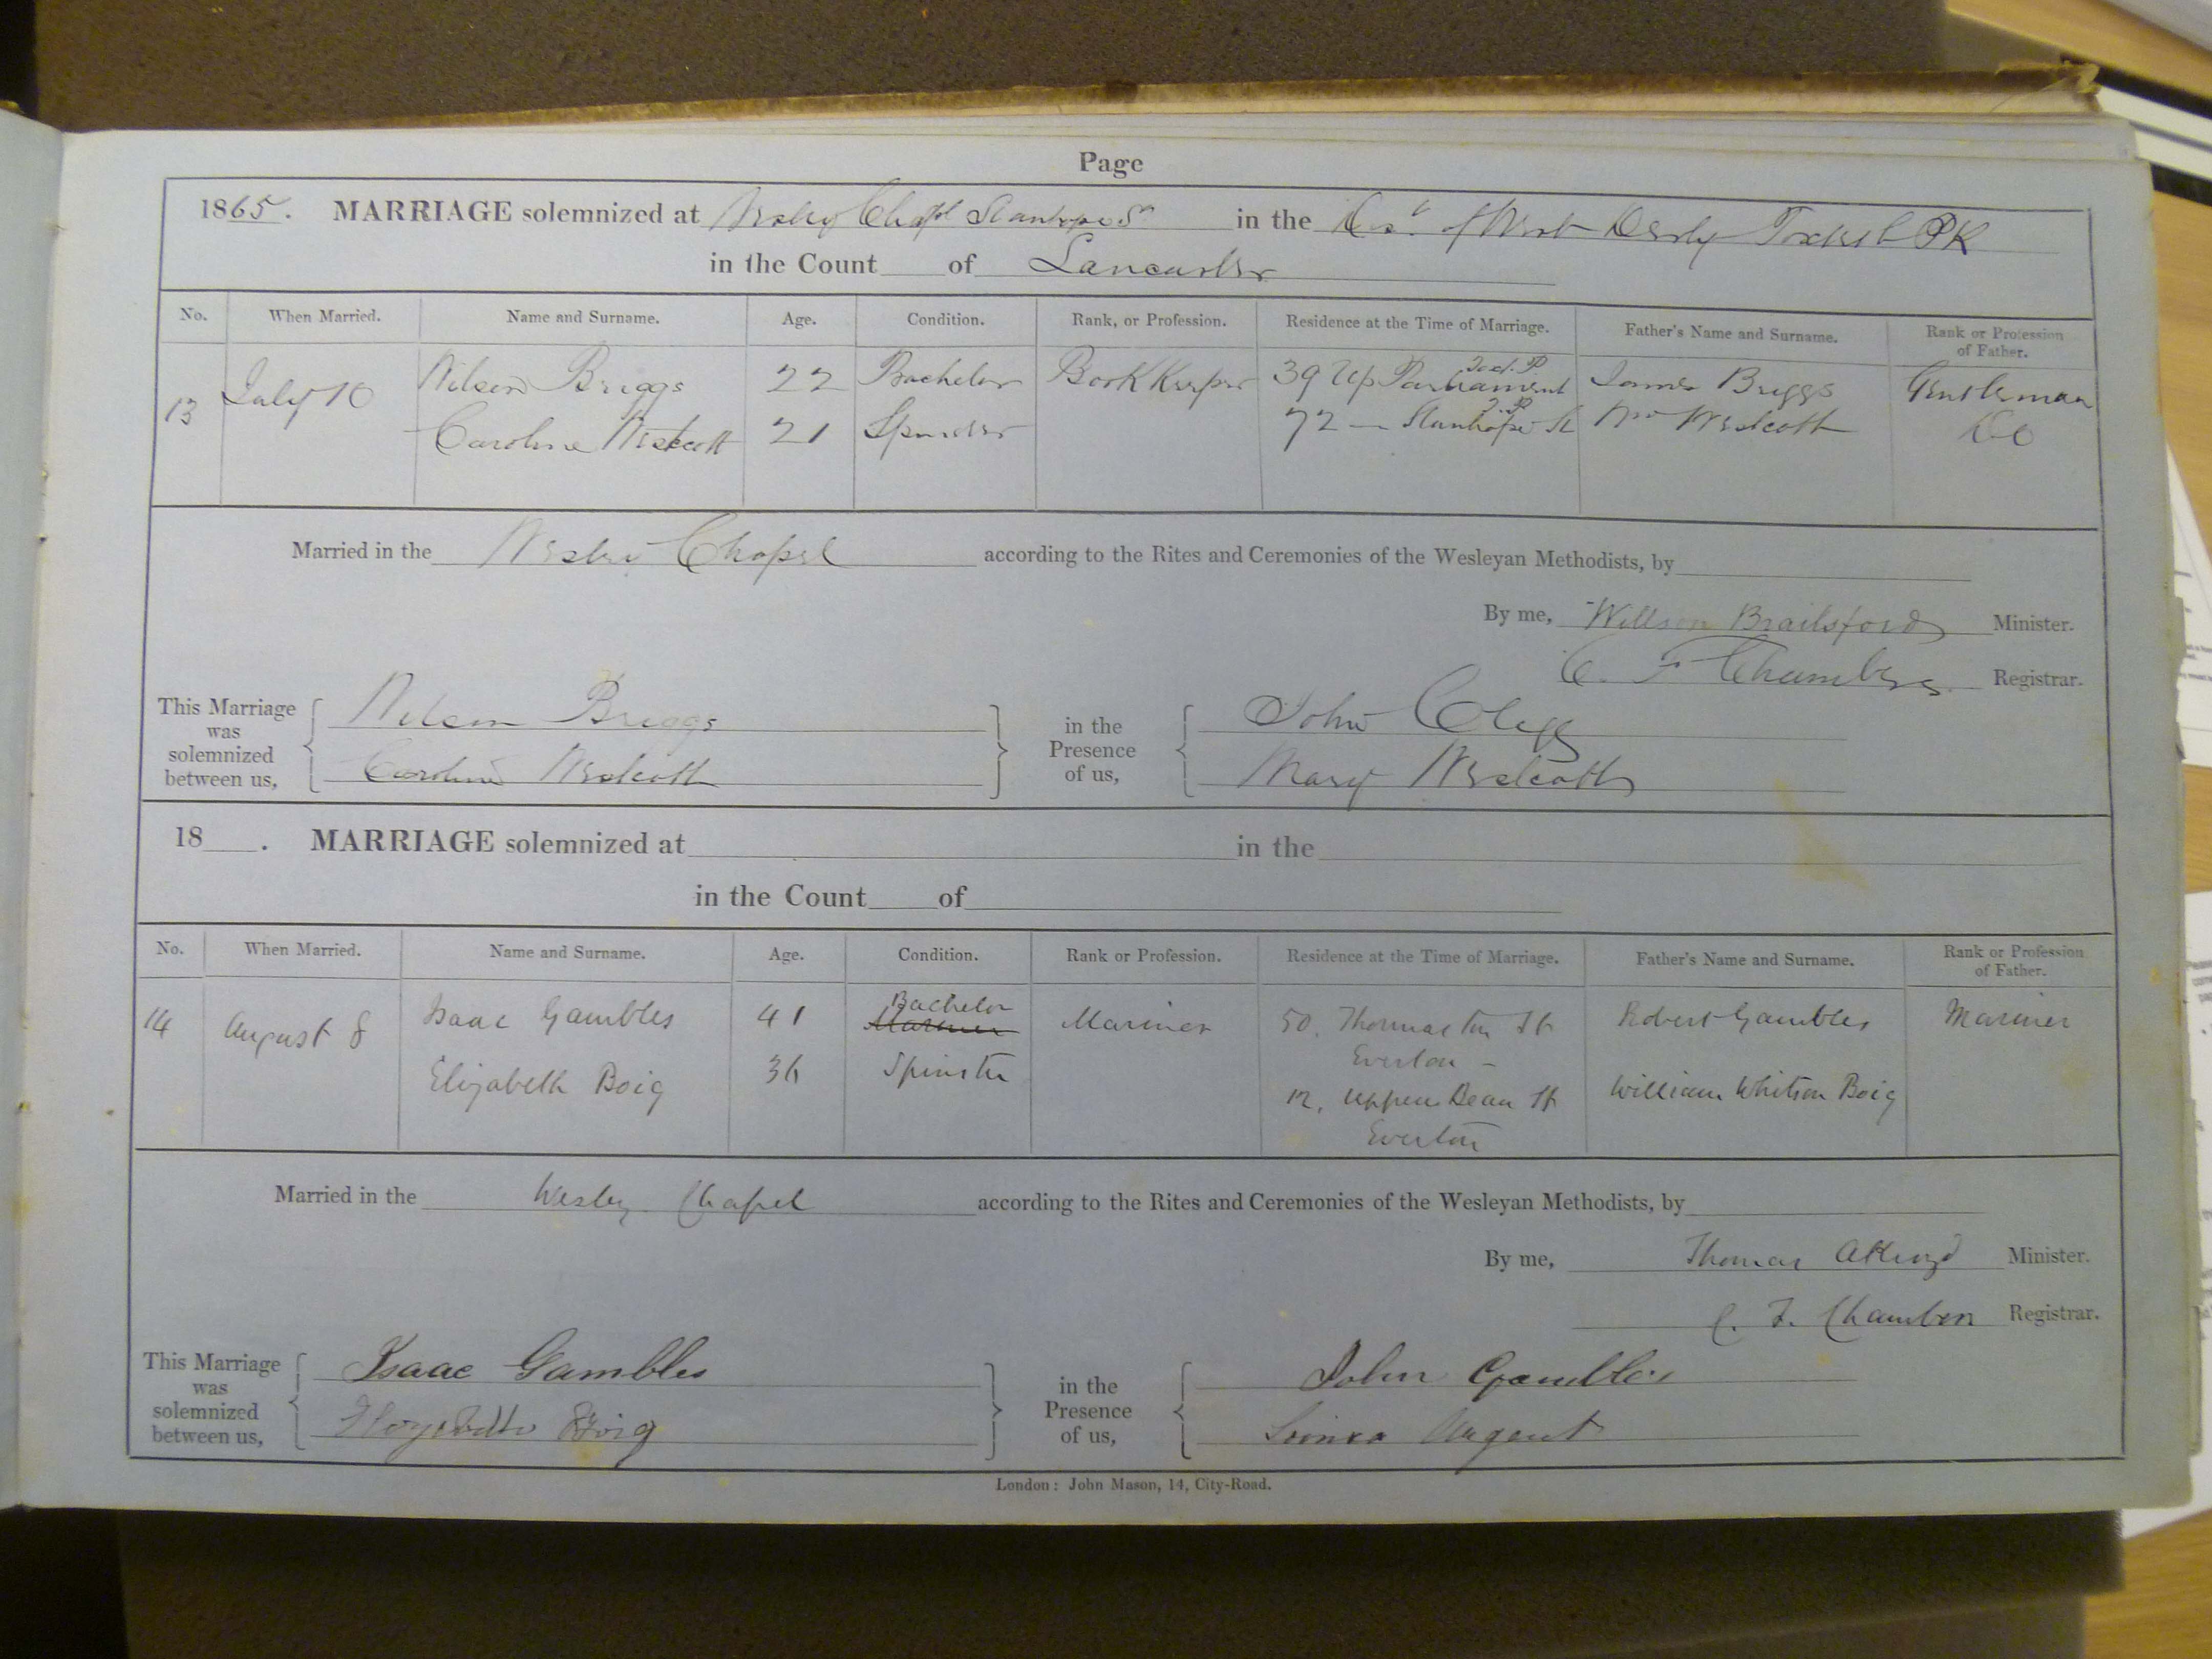 Page
1865. MARRIAGE solemnized at Wesley Chapel Stanhope St in the Dist of West Derby Toxteth PK
in the Count of Lancaster
No. When Married. Name and Surname. Age. Condition. Rank, or Profession. Residence at the Time of Marriage. Father's Name and Surname. Rank or Profession of Father.
13 July 10 Nelson Briggs 22 Bachelor Book Keeper 39 Up Parliament Tox. P James Briggs Gentleman
Caroline Westcott 21 Spinster 72 Stanhope St T. P Wm Westcott Do
Married in the Wesley Chapel according to the Rites and Ceremonies of the Wesleyan Methodists, by
By me, Willson Brailsford Minister.
C. F Chambers Registrar.
This Marriage was solemnized between us, Nelson Briggs in the Presence of us, John Clegg
Caroline Westcott Mary Westcott
18 . MARRIAGE solemnized at in the
in the Count of
No. When Married. Name and Surname. Age. Condition. Rank or Profession. Residence at the Time of Marriage. Father's Name and Surname. Rank or Profession of Father.
14 August 8 Isaac Gambles 41 Bachelor Mariner Mariner 50, Thomaston St Everton Robert Gambles Mariner
Elizabeth Boig 36 Spinster 12, Upper Bean St Everton William Whitson Boig
Married in the Wesley Chapel according to the Rites and Ceremonies of the Wesleyan Methodists, by
By me, Thomas Akroyd Minister.
C. F. Chambers Registrar.
This Marriage was solemnized between us, Isaac Gambles in the Presence of us, John Gambles
Elizabeth Boig Argent
London: John Mason, 14, City-Road.